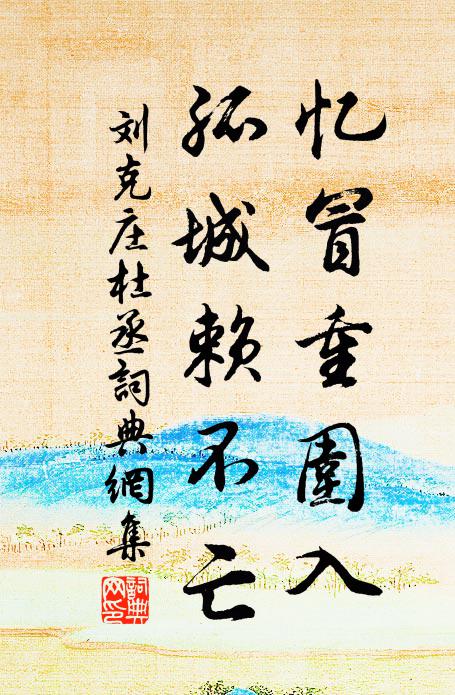 忆冒重圍入
孤城赖不亡
刘克庄杜丞詞典網集
詞典網印